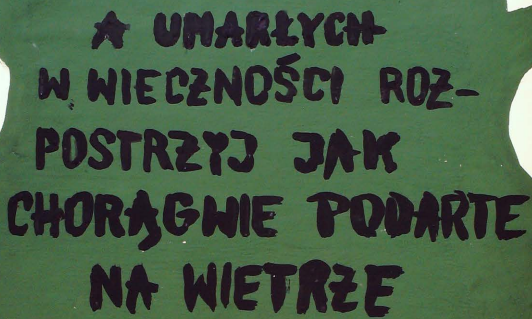 A UMARŁYCH
W WIECZNOŚCI ROZ-
POSTRZYJ JAK
CHORĄGWIE PODARTE
NA WIETRZE